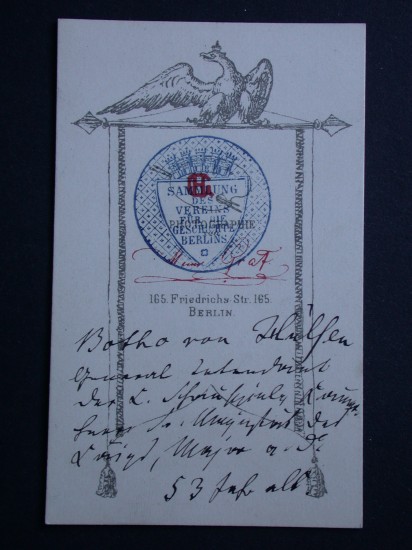 SAMMLUNG
DES
VEREINS
FÜR DIE
PHOTOGRAPHIE
GESCHICHTE
BERLINS
Graf
165. Friedrichs-Str. 165.
BERLIN
Botho von Hülsen
General Intendant
der K. Schauspiele Kamm-
herr Sr. Majestät des
Königs, Major a. D.
53 Jahr alt